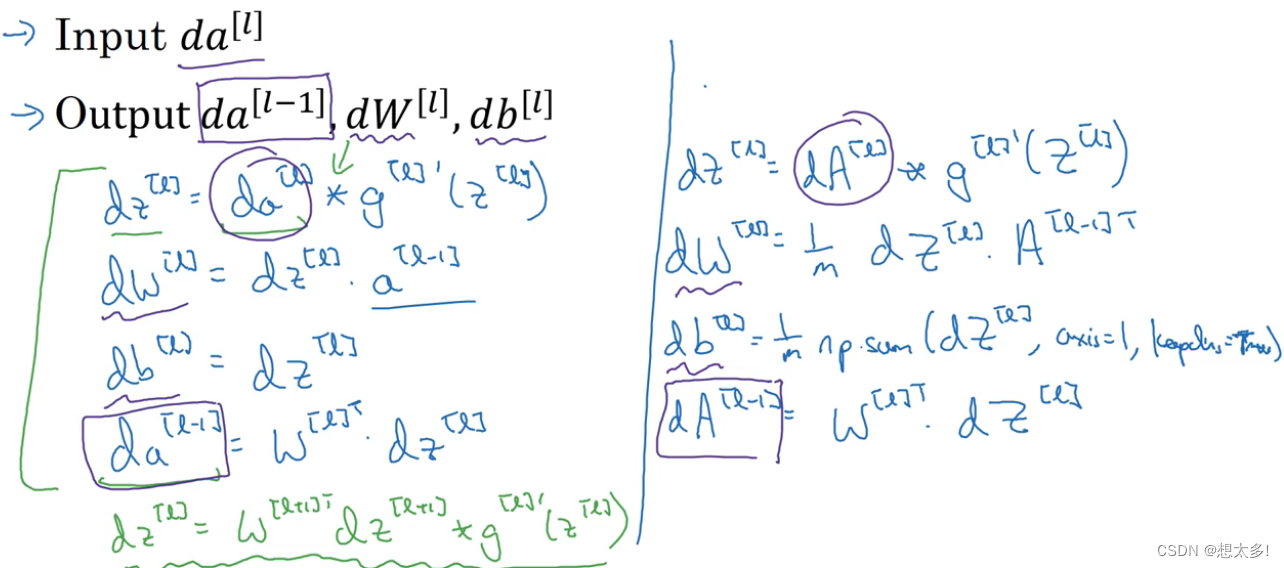 → Input da^[l]
→ Output da^[l−1], dW^[l], db^[l]
dz^[l] = da^[l] * g^[l]'(z^[l])
dW^[l] = dz^[l] · a^[l-1]
db^[l] = dz^[l]
da^[l-1] = W^[l]T · dz^[l]
dz^[l] = W^[l+1]T dz^[l+1] * g^[l]'(z^[l])
dZ^[l] = dA^[l] * g^[l]'(Z^[l])
dW^[l] = 1/m dZ^[l] · A^[l-1]T
db^[l] = 1/m np.sum(dZ^[l], axis=1, keepdims=True)
dA^[l-1] = W^[l]T · dZ^[l]
CSDN @想太多!